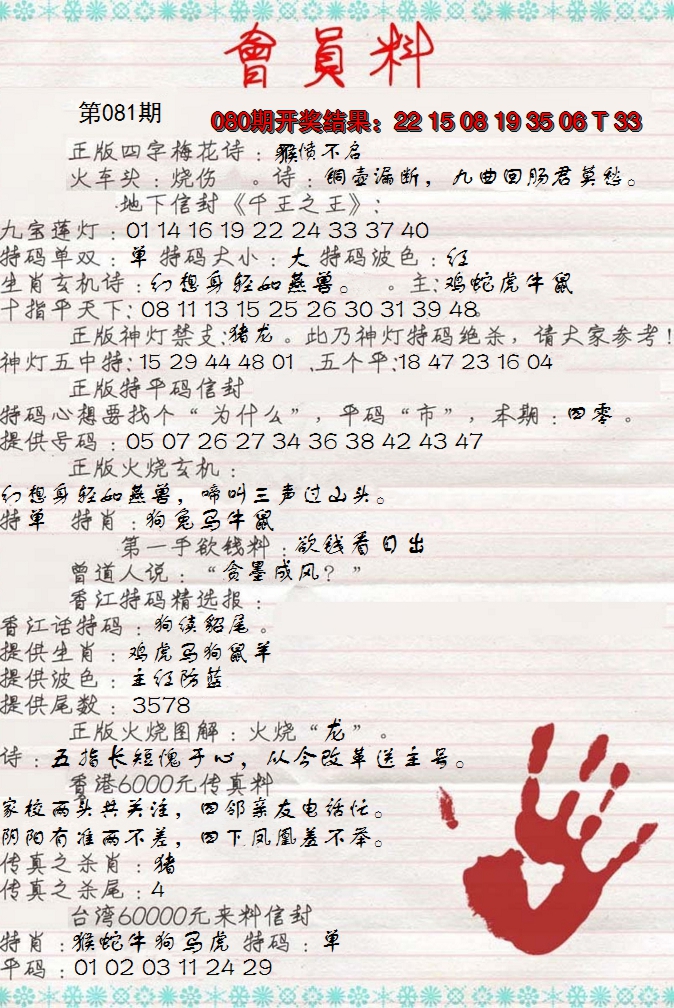 會員料
第081期
080期开奖结果：22 15 08 19 35 06 T 33
正版四字梅花诗：猴债不启
火车头：烧伤 。诗：铜壶漏断，九曲回肠君莫愁。
地下信封《千王之王》：
九宝莲灯：01 14 16 19 22 24 33 37 40
特码单双：单 特码大小：大 特码波色：红
生肖玄机诗：幻想身轻如燕兽。 。主：鸡蛇虎牛鼠
十指平天下：08 11 13 15 25 26 30 31 39 48。
正版神灯禁支：猪龙。此乃神灯特码绝杀，请大家参考！
神灯五中特：15 29 44 48 01 、五个平：18 47 23 16 04
正版特平码信封
特码心想要找个“为什么”，平码“市”，本期：四零。
提供号码：05 07 26 27 34 36 38 42 43 47
正版火烧玄机：
幻想身轻如燕兽，啼叫三声过山头。
特单 特肖：狗兔马牛鼠
第一手欲钱料：欲钱看日出
曾道人说：“贪墨成风？”
香江特码精选报：
香江话特码：狗续貂尾。
提供生肖：鸡虎马狗鼠羊
提供波色：主红防蓝
提供尾数：3578
正版火烧图解：火烧“龙”。
诗：五指长短愧于心，从今改革送主号。
香港6000元传真料
家校两头共关注，四邻亲友电话忙。
阴阳有准两不差，四下凤凰羞不举。
传真之杀肖：猪
传真之杀尾：4
台湾60000元来料信封
特肖：猴蛇牛狗马虎 特码：单
平码：01 02 03 11 24 29